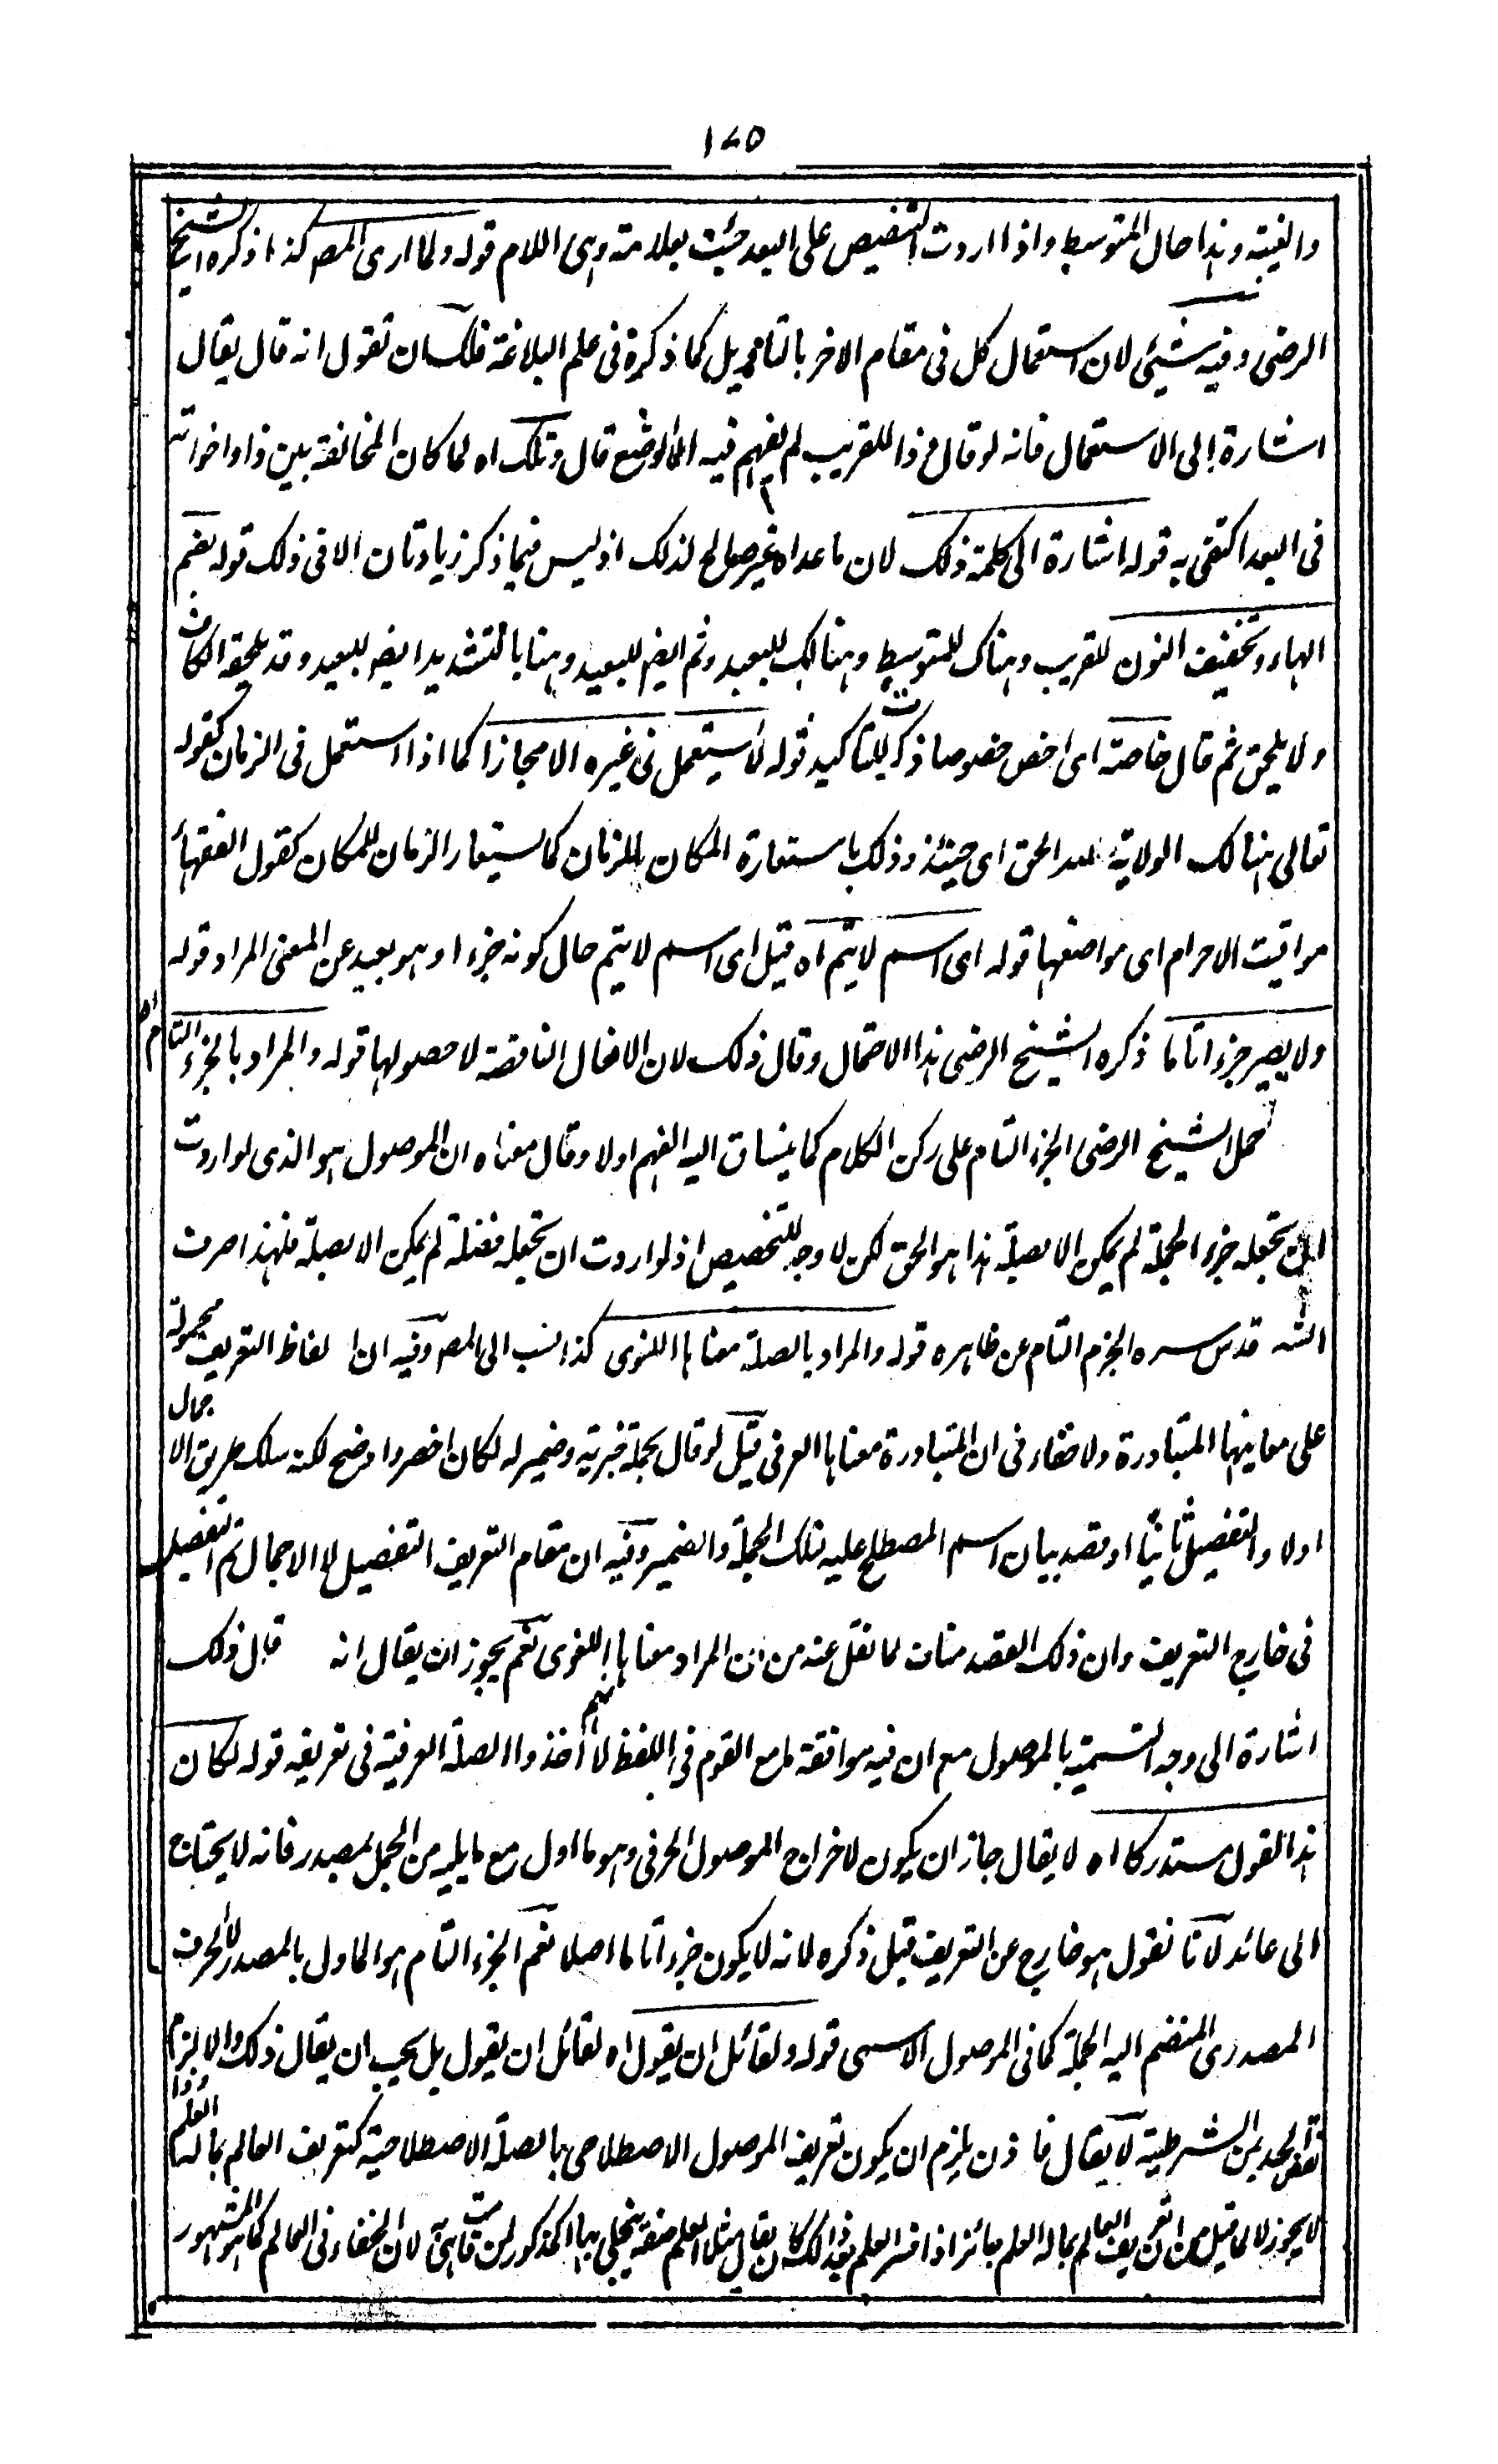 ١٤٥
والغيبة وهذا حال المتوسط واذا اردت التنصيص على البعد جئت بعلامته وهى اللام قوله ولما ارى المصـ كذا ذكره الشيخ
الرضى وفيه شيئ لان استعمال كل فى مقام الاخر بالتاويل كما ذكرة فى علم البلاغة فلك ان تقول انه قال يقال
اشارة الى الاستعمال فانه لو قال ذا للقريب لم يفهم فيه الا الوضع قال وتلك اه لما كان المخالفة بين ذا واخواته
فى البعد اكتفى به قوله اشارة الى كلمة ذلك لان ما عداه غير صالح لذلك اذ ليس فيما ذكر زيادتان الا فى ذلك قوله بضم
الهاء وتخفيف النون للقريب وهناك للمتوسط وهنالك للبعيد وثم ايضـ للبعيد وهنا بالتشديد ايضـ للبعيد وقد يلحقه الكاف
ولا يلحق ثم قال خاصة اى اخص خصوصا ذكرت للتاكيد قوله لا يستعمل فى غيره الا مجازا كما اذا استعمل فى الزمان كقوله
تعالى هنالك الولاية لله الحق اى حينئذ وذلك باستعارة المكان للزمان كما يستعار الزمان للمكان كقول الفقهاء
مواقيت الاحرام اى مواضعها قوله اى اسم لا يتم اه قيل اى اسم لا يتم حال كونه جزءا وهو بعيد عن المعنى المراد قوله
ولا يصير جزءا تاما ذكره الشيخ الرضى هذا الاحتمال وقال ذلك لان الافعال الناقصة لا حصولها قوله والمراد بالجزء التام اه
حمل الشيخ الرضى الجزء التام على ركن الكلام كما ينساق اليه الفهم اولا وقال معناه ان الموصول هو الذى لو اردت
ان تجعله جزء الجملة لم يمكن الا بصلة هذا هو الحق لكن لا وجه للتخصيص اذ لو اردت ان تجعله فضلة لم يمكن الا بصلة فلهذا صرف
الشـ قدس سره الجزء التام عن ظاهره قوله والمراد بالصلة معناها اللغوى كذا نسب الى المصـ وفيه ان الفاظ التعريف محمولة
على معانيها المتبادرة ولا خفاء فى ان المتبادرة معناها العرفى قيل لو قال بجملة خبرية وضمير له لكان اخصر واوضح لكنه سلك طريق الاجمال
اولا والتفصيل ثانيا او قصد بيان اسم المصطلح عليه لتلك الجملة والضمير وفيه ان مقام التعريف التفصيل لا الاجمال ثم التفصيل
فى خارج التعريف وان ذلك القصد مناف لما نقل عنه من ان المراد معناها اللغوى نعم يجوز ان يقال انه قال ذلك
اشارة الى وجه التسمية بالموصول مع ان فيه موافقة ما مع القوم فى اللفظ لانهم اخذوا الصلة العرفية فى تعريفه قوله لكان
هذا القول مستدركا اه لا يقال جاز ان يكون لاخراج الموصول الحرفى وهو ما اول مع ما يليه من الجمل بمصدر فانه لا يحتاج
الى عائد لانا نقول هو خارج عن التعريف قبل ذكره لانه لا يكون جزءا تاما اصلا نعم الجزء التام هو الماول بالمصدر لا الحرف
المصدرى المنضم اليه الجملة كما فى الموصول الاسمى قوله ولقائل ان يقول اه لقائل ان يقول بل يجب ان يقال ذلك والا لزم
نقض الحد بمن الشرطية لا يقال فاذن يلزم ان يكون تعريف الموصول الاصطلاحى بالصلة الاصطلاحية كتعريف العالم بما له العلم وذا
لا يجوز لا لما قيل من ان تعريف العالم بما له العلم جائز اذا فسر العلم بعد ذلك كان يقال مثلا العلم صفة يتجلى بها المذكور لمن قامت هى به لان الخفاء فى العالم كما هو المشهور